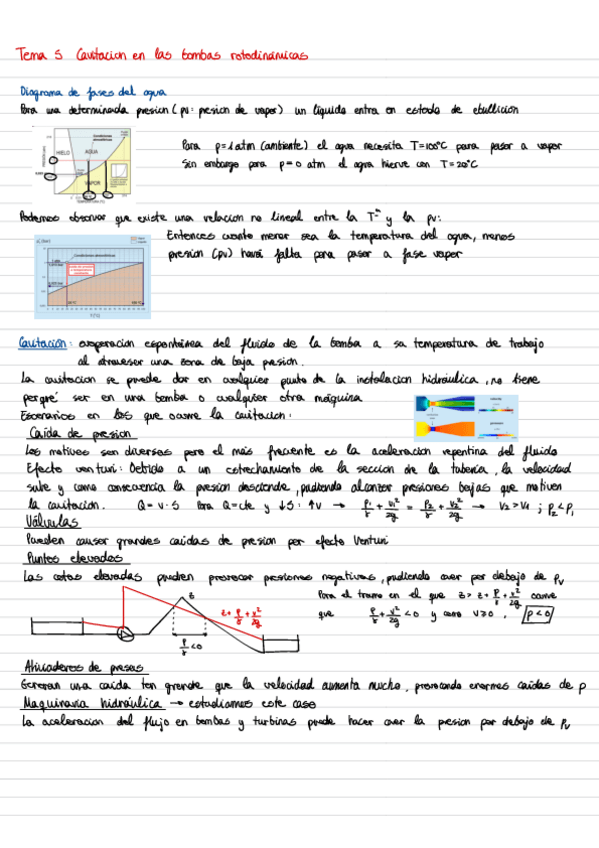 Tema 5 Cavitacion en las bombas rotodinámicas
Diagrama de fases del agua
Para una determinada presion (pv: presion de vapor) un líquido entra en estado de ebullición
HIELO
AGUA
VAPOR
Condiciones atmosféricas
Para p=1 atm (ambiente) el agua necesita T=100°C para pasar a vapor
Sin embargo para p=0 atm el agua hierve con T=20°C
Podemos observar que existe una relacion no lineal entre la Tª y la pv:
Condiciones atmosféricas
Entonces cuanto menor sea la temperatura del agua, menos
presion (pv) hará falta para pasar a fase vapor
Cavitación: evaporacion espontánea del fluido de la bomba a su temperatura de trabajo
al atravesar una zona de baja presion.
La cavitacion se puede dar en cualquier punto de la instalacion hidráulica, no tiene
porqué ser en una bomba o cualquier otra máquina
Escenarios en los que ocurre la cavitacion:
Caída de presion
Los motivos son diversos pero el más frecuente es la aceleracion repentina del fluido
Efecto venturi: Debido a un estrechamiento de la seccion de la tubería, la velocidad
sube y como consecuencia la presion desciende, pudiendo alcanzar presiones bajas que motiven
la cavitacion. Q = v · S Para Q=cte y ↓S : ↑V → P1/γ + v1²/2g = P2/γ + v2²/2g → V2 > V1 ; P2 < P1
Válvulas
Pueden causar grandes caídas de presion por efecto Venturi
Puntos elevados
Las cotas elevadas pueden provocar presiones negativas, pudiendo caer por debajo de pv
Para el tramo en el que z > z + P/γ + v²/2g ocurre
que P/γ + v²/2g < 0 y como v≥0 , p<0
z
z + P/γ + v²/2g
P/γ < 0
Aliviaderos de presas
Generan una caída tan grande que la velocidad aumenta mucho, provocando enormes caídas de p
Maquinaria hidráulica → estudiamos este caso
La aceleracion del flujo en bombas y turbinas puede hacer caer la presion por debajo de pv